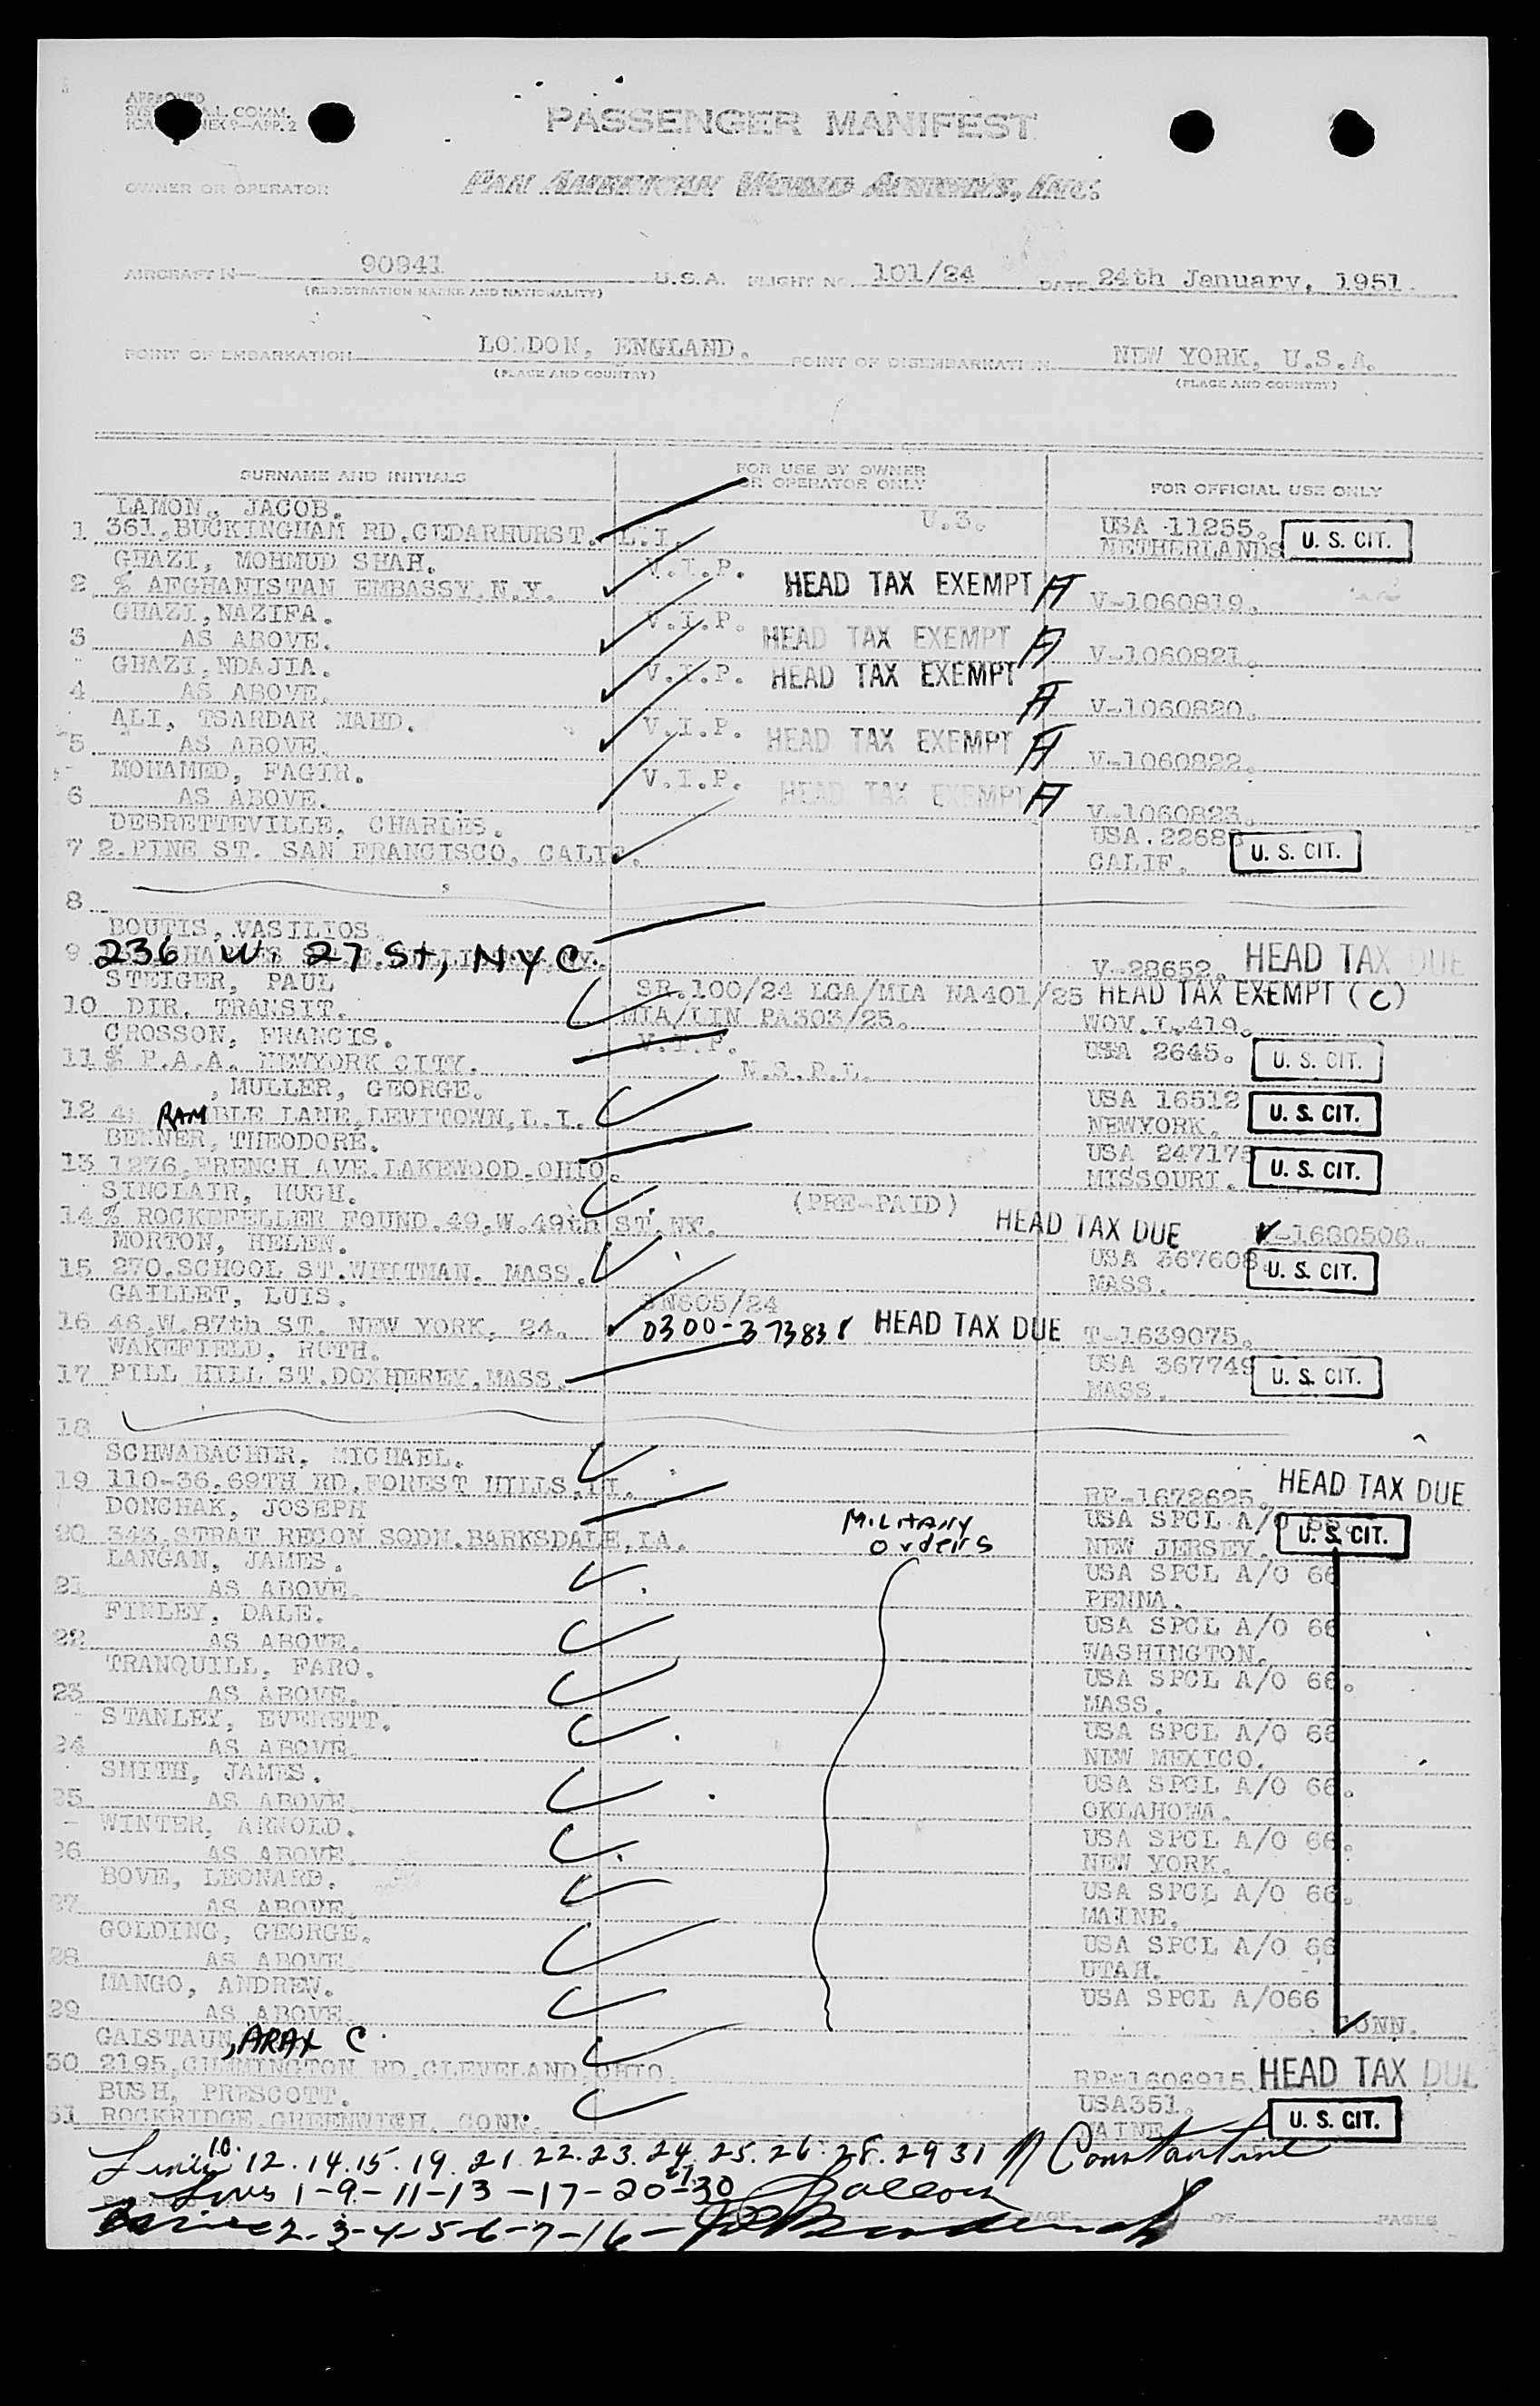 APPROVED
L. COMM.
NEX 9—APP. 2
PASSENGER MANIFEST
OWNER OR OPERATOR PAN AMERICAN WORLD AIRWAYS, INC.
AIRCRAFT N— 90941 U.S.A. FLIGHT No. 101/24 DATE 24th January, 1951.
(REGISTRATION MARKS AND NATIONALITY)
POINT OF EMBARKATION LONDON, ENGLAND. POINT OF DISEMBARKATION NEW YORK, U.S.A.
(PLACE AND COUNTRY) (PLACE AND COUNTRY)
SURNAME AND INITIALS FOR USE BY OWNER OR OPERATOR ONLY FOR OFFICIAL USE ONLY
LAMON, JACOB. U.S. USA 11255.
1 361,BUCKINGHAM RD.CEDARHURST. L.I. NETHERLANDS U. S. CIT.
GHAZI, MOHMUD SHAH. V.I.P. HEAD TAX EXEMPT A
2 % AFGHANISTAN EMBASSY.N.Y. V-1060819.
GHAZI,NAZIFA. V.I.P. HEAD TAX EXEMPT A
3 AS ABOVE. V-1060821.
GHAZI,NDAJIA. V.I.P. HEAD TAX EXEMPT A
4 AS ABOVE. V-1060820.
ALI, TSARDAR MAHD. V.I.P. HEAD TAX EXEMPT A
5 AS ABOVE. V-1060822.
MOHAMED, FAGIR. V.I.P. HEAD TAX EXEMPT A
6 AS ABOVE. V-1060823.
DEBRETTEVILLE, CHARLES. USA.2268
7 2.PINE ST. SAN FRANCISCO, CALIF. CALIF. U. S. CIT.
8
BOUTIS, VASILIOS.
9 236 W. 27 St, NYC. V-28652. HEAD TAX DUE
STEIGER, PAUL SR.100/24 LGA/MIA NA401/25 HEAD TAX EXEMPT (C)
10 DIR. TRANSIT. MIA/LIN PA303/25. WOV.I.419.
CROSSON, FRANCIS. V.I.P. USA 2645. U. S. CIT.
11 % P.A.A. NEWYORK CITY. N.S.P.L.
, MULLER, GEORGE. USA 16512
12 4 RAMBLE LANE,LEVITTOWN,L.I. NEWYORK. U. S. CIT.
BENNER, THEODORE. USA 247173
13 1276,FRENCH AVE.LAKEWOOD.OHIO. MISSOURI. U. S. CIT.
SINCLAIR, HUGH. (PRE-PAID)
14 % ROCKEFELLER FOUND.49,W.49th ST.NY. HEAD TAX DUE V-1680506.
MORTON, HELEN. USA 367608
15 270,SCHOOL ST.WHITMAN. MASS. MASS. U. S. CIT.
GAILLET, LUIS. BN605/24
16 46,W.87th ST. NEW YORK, 24. 0300-373838 HEAD TAX DUE T-1639075.
WAKEFIELD, RUTH. USA 367749
17 PILL HILL ST.DOXHEREY,MASS. MASS. U. S. CIT.
18
SCHWABACHER, MICHAEL.
19 110-36,69TH RD.FOREST HILLS,LI. RP-1672625. HEAD TAX DUE
DONCHAK, JOSEPH USA SPCL A/O
20 343,STRAT RECON SQDN.BARKSDALE,LA. MILITARY orders NEW JERSEY. U. S. CIT.
LANGAN, JAMES. USA SPCL A/O 66
21 AS ABOVE. PENNA.
FINLEY, DALE. USA SPCL A/O 66
22 AS ABOVE. WASHINGTON.
TRANQUILL, FARO. USA SPCL A/O 66.
23 AS ABOVE. MASS.
STANLEY, EVERETT. USA SPCL A/O 66
24 AS ABOVE. NEW MEXICO.
SMITH, JAMES. USA SPCL A/O 66.
25 AS ABOVE. OKLAHOMA.
WINTER, ARNOLD. USA SPCL A/O 66.
26 AS ABOVE. NEW YORK.
BOVE, LEONARD. USA SPCL A/O 66.
27 AS ABOVE. MAINE.
GOLDING, GEORGE. USA SPCL A/O 66
28 AS ABOVE. UTAH.
MANGO, ANDREW. USA SPCL A/O66
29 AS ABOVE. CONN.
GALSTAUN, ARAX C
30 2195,CUMMINGTON RD.CLEVELAND,OHIO. RP-1606915. HEAD TAX DUE
BUSH, PRESCOTT. USA351.
31 ROCKRIDGE.GREENWICH, CONN. U. S. CIT.
10. 12. 14. 15. 19. 21. 22. 23. 24. 25. 26. 28. 29 31 Constantine
Lines 1-9-11-13-17-20-27-30
2-3-4-5-6-7-16-
PAGE OF PAGES